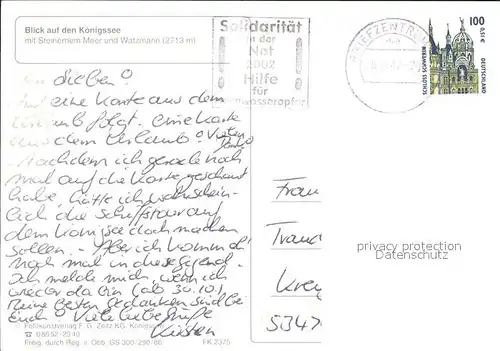 Blick auf den Königssee
mit Steinernem Meer und Watzmann (2713 m)
Solidarität
in der
Not
2002
Hilfe
für
BRIEFZENTRUM
100
0,51 €
SCHLOSS SCHWERIN
DEUTSCHLAND
Ihr Lieben!
Auf eine Karte aus dem
Urlaub folgt eine Karte
aus dem Urlaub! Vielen
Dank!
Nachdem ich gerade noch
mal auf die Karte geschaut
habe, hätte ich wahrschein-
lich die Schiffstour auf
dem Königssee doch machen
sollen. - Aber ich komm ja
noch mal in diese Gegend.
Ich melde mich, wenn ich
wieder da bin (ab 30.10.)
Meine besten Gedanken sind bei
Euch! Viele liebe Grüße
Kirsten
Frau
5347
privacy protection
Datenschutz
© Fotokunstverlag F. G. Zeitz KG, Königssee
Freig. durch Reg. v. Obb. GS 300/290/86
FK 2375